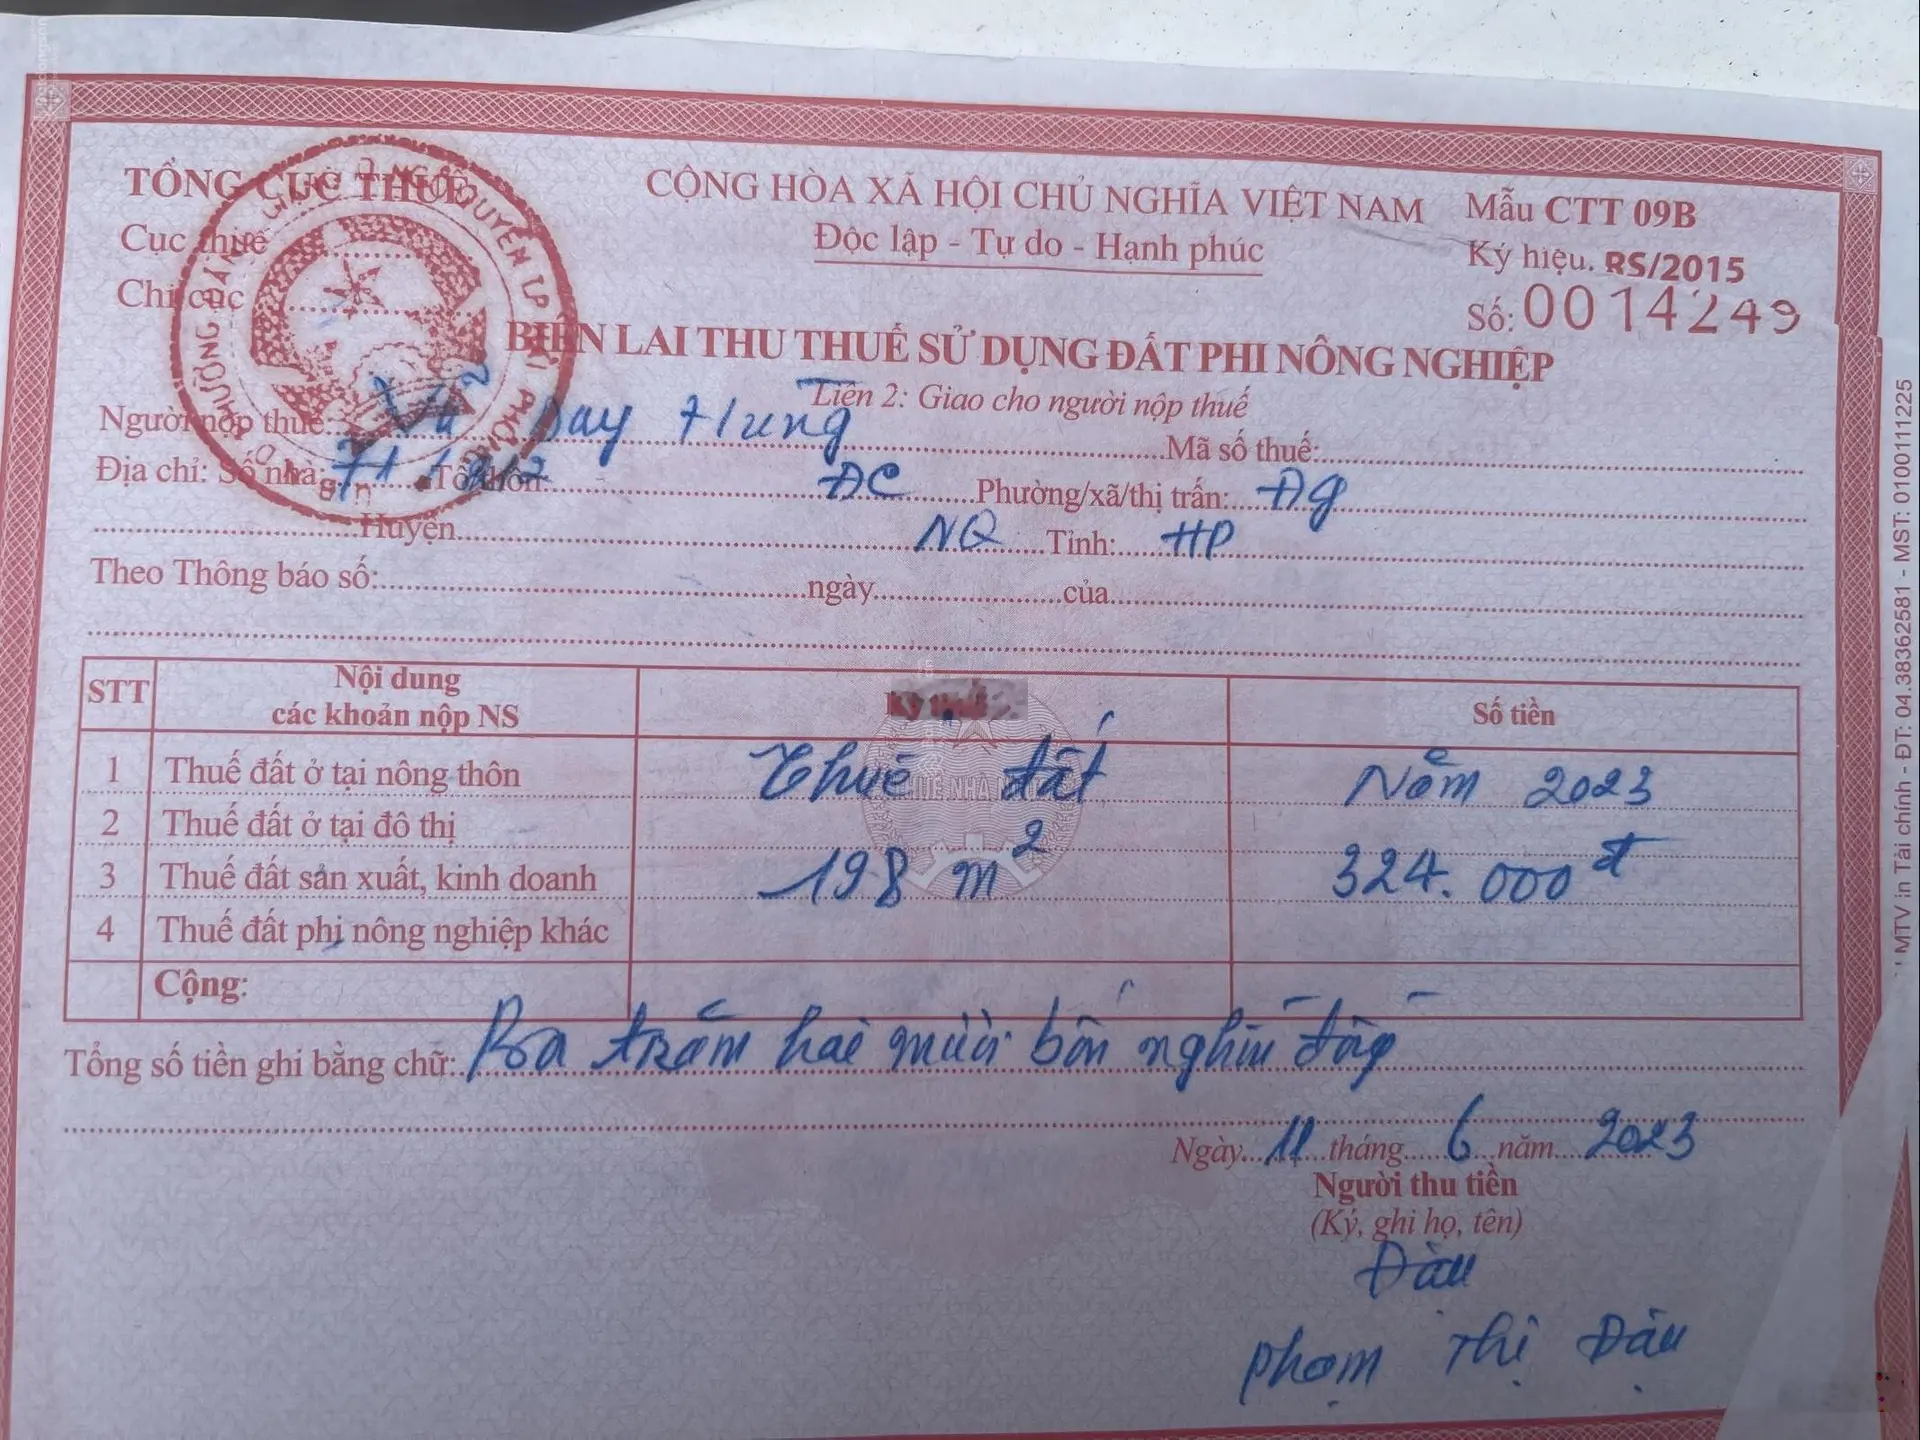 TỔNG CỤC THUẾ
CỘNG HÒA XÃ HỘI CHỦ NGHĨA VIỆT NAM
Mẫu CTT 09B
Cục thuế
Độc lập - Tự do - Hạnh phúc
Ký hiệu. RS/2015
Chi cục
Số: 0014249
BIÊN LAI THU THUẾ SỬ DỤNG ĐẤT PHI NÔNG NGHIỆP
Liên 2: Giao cho người nộp thuế
Người nộp thuế: Vũ Duy Hưng Mã số thuế:
Địa chỉ: Số nhà: Tổ/thôn: ĐC Phường/xã/thị trấn: Đg
Huyện NQ Tỉnh: HP
Theo Thông báo số: ngày của
STT Nội dung các khoản nộp NS Số tiền
1 Thuế đất ở tại nông thôn Thuê đất Năm 2023
2 Thuế đất ở tại đô thị
3 Thuế đất sản xuất, kinh doanh 198 m² 324.000đ
4 Thuế đất phi nông nghiệp khác
Cộng:
Tổng số tiền ghi bằng chữ: Ba trăm hai mươi bốn nghìn đồng
Ngày 11 tháng 6 năm 2023
Người thu tiền
(Ký, ghi họ, tên)
Đàu
Phạm Thị Đàu
MTV in Tài chính - ĐT: 04.38362581 - MST: 0100111225